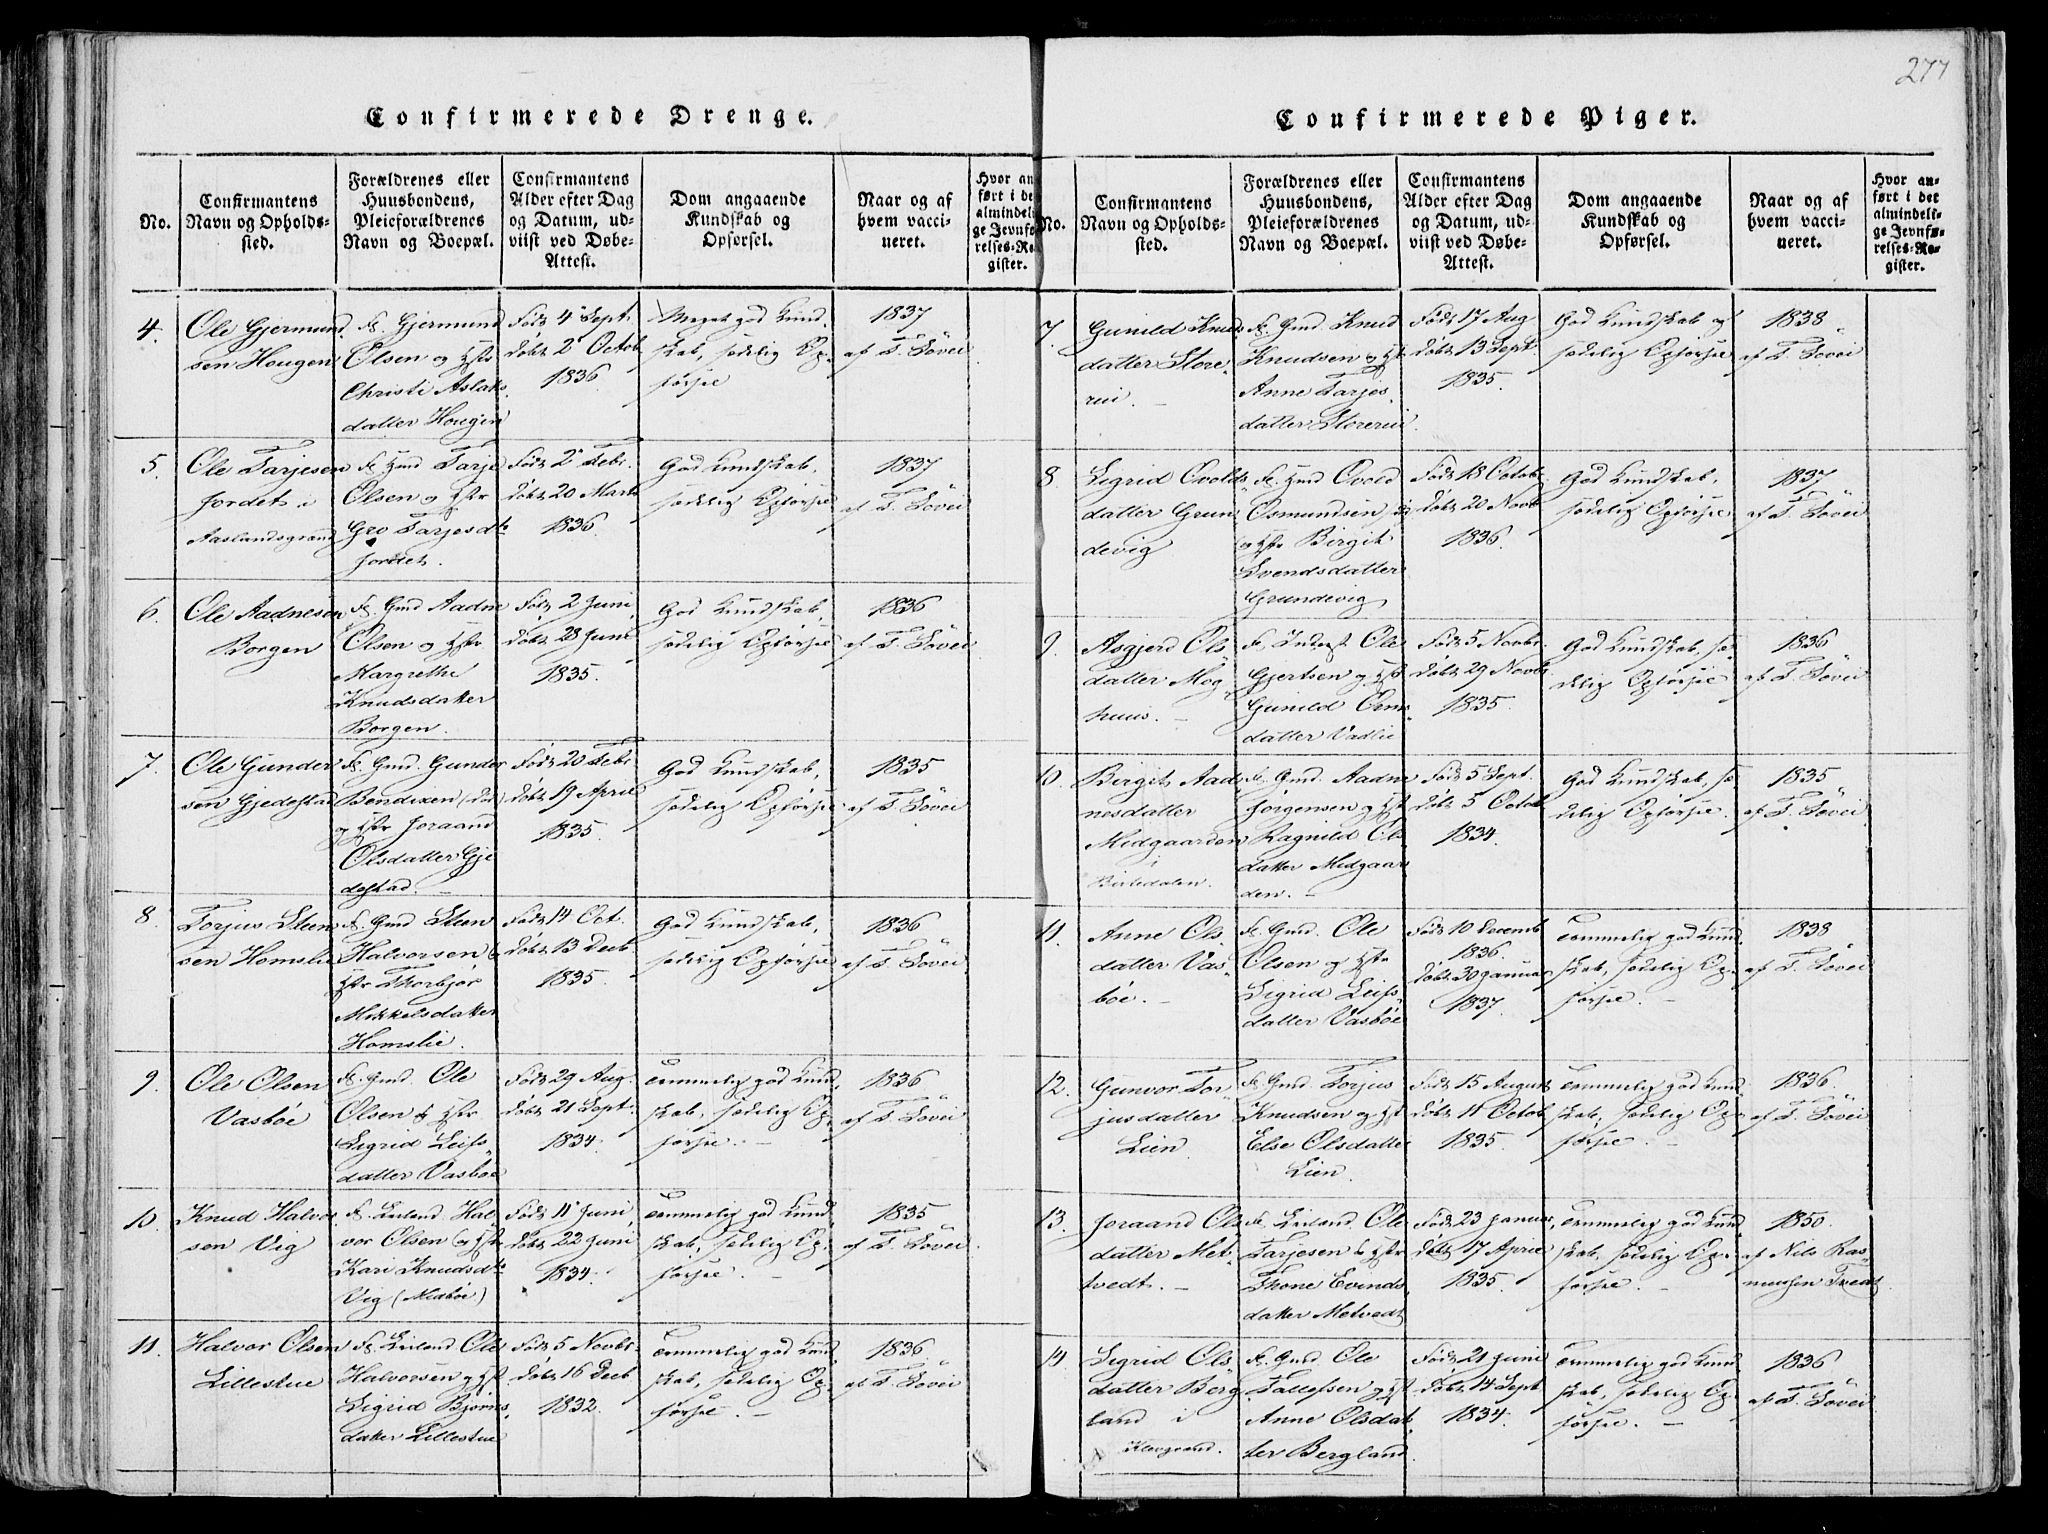 277
Confirmerede Drenge.
No.
Confirmantens
Navn og Opholds-
sted.
Forældrenes eller
Huusbondens,
Pleieforældrenes
Navn og Boepæl.
Confirmantens
Alder efter Dag
og Datum, ud-
viist ved Døbe-
Attest.
Dom angaaende
Kundskab og
Opførsel.
Naar og af
hvem vacci-
neret.
Hvor an
ført i de
almindel
ge Jevnfø
relses-Re
gister.
4.
Ole Gjermund
sen Hougen
F. Gjermund
Olsen og Hstr
Christi Aslaks
datter Hougen
Født 4 Sept.
Døbt 2 Octob
1836
Meget god Kund
skab, sædelig Op-
førsel
1837
af T. Sövei
5.
Ole Tarjesen
Jordet i
Aaslandsgrand
F. Gmd Tarje
Olsen og Hstr
Gro Tarjesdtr
Jordet.
Født 2 Febr.
Døbt 20 Marts
1836
God Kundskab,
sædelig Opførsel
1837
af T. Sövei
6.
Ole Aadnesen
Borgen
F. Gmd Aadne
Olsen og Hstr
Margrethe
Knudsdatter
Borgen.
Født 2 Juni,
Døbt 28 Juni
1835.
God Kundskab,
sædelig Opførsel
1836
af T. Sövei
7.
Ole Gunder
sen Gjedestad
F. Gmd. Gunder
Bendixen (død)
og Hstr Joraand
Olsdatter Gje
destad.
Født 20 Febr
Døbt 19 April
1835.
God Kundskab,
sædelig Opførsel
1835
af T. Sövei
8.
Torjus Steen
sen Homslie
F. Gmd Steen
Halvorsen &
Hstr Thorbjør
Mikkelsdatter
Homslie.
Født 14 Oct.
Døbt 13 Decb
1835.
God Kundskab,
sædelig Opførsel
1836
af T. Sövei
9.
Ole Olsen
Vasböe
F. Gmd. Ole
Olsen & Hstr
Sigrid Leifs
datter Vasböe
Født 29 Aug.
Døbt 21 Sept.
1834.
Temmelig god Kund
skab, sædelig Op-
førsel.
1836
af T. Sövei
10.
Knud Halvor
sen Vig
F. Leiland. Hal
vor Olsen og Hstr
Kari Knudsdtr
Vig (Midböe)
Født 11 Juni,
Døbt 22 Juni
1834.
Temmelig god Kund
skab, sædelig Op-
førsel.
1835
af T. Sövei
11.
Halvor Olsen
Lillestue
F. Leiland Ole
Halvorsen og Hst
Sigrid Bjørns
datter Lillestue
Født 5 Novbr.
Døbt 16 Decb
1832.
Temmelig god Kund
skab, sædelig Op-
førsel.
1836
af T. Sövei
Confirmerede Piger.
No.
Confirmantens
Navn og Opholds-
sted.
Forældrenes eller
Huusbondens,
Pleieforældrenes
Navn og Boepæl.
Confirmantens
Alder efter Dag
og Datum, ud-
viist ved Døbe-
Attest.
Dom angaaende
Kundskab og
Opførsel.
Naar og af
hvem vacci-
neret.
Hvor an-
ført i det
almindeli-
ge Jevnfø-
relses-Re-
gister.
7.
Gunild Knuds
datter Store
rui.
F. Gmd. Knud
Knudsen og Hst
Anne Tarjes
datter Storerui.
Født 17 Aug
Døbt 13 Sept.
1835.
God Kundskab og
sædelig Opførsel
1838
af T. Sövei
8.
Sigrid Evolds
datter Grun
devig
F. Gmd Evold
Osmundsen
og Hstr Birgit
Svendsdatter
Grundevig
Født 18 Octob
Døbt 20 Novb
1836.
God Kundskab,
sædelig Opførsel
1837
af T. Sövei
9.
Asgjerd Ols
datter Mog
huus.
F. Inderst Ole
Gjertsen og Hst
Gunild Orms
datter Vadlie
Født 5 Novbr.
Døbt 29 Novbr
1835.
God Kundskab, sæ
delig Opførsel
1836
af T. Sövei
10.
Birgit Aad
nesdatter
Midgaarden
i
Birtedalen.
F. Gmd. Aadne
Jørgensen og Hst
Ragnild Ols
datter Midgaar
den.
Født 5 Sept.
Døbt 5 Octob
1834.
God Kundskab, sæ
delig Opførsel.
1835
af T. Sövei
11.
Anne Ols
datter Vas
böe.
F. Gmd. Ole
Olsen og Hstr
Sigrid Leifs
datter Vasböe
Født 10 Decemb
1836.
Døbt 30 Januar
1837.
Temmelig god Kund
skab, sædelig Op-
førsel.
1838
af T. Sövei
12.
Gunvor Tor
jusdatter
Lien
F. Gmd. Torjus
Knudsen og Hst
Else Olsdatter
Lien.
Født 15 August
Døbt 11 Octob
1835.
Temmelig god Kund
skab, sædelig Op-
førsel.
1836
af T. Sövei
13.
Joraand Ols
datter Met
vedt.
F. Leiland Ole
Tarjesen & Hstr
Thone Evends
datter Metvedt
Født 23 Januar,
Døbt 17 April
1835.
Temmelig god Kund
skab, sædelig Op-
førsel.
1850.
af Nils Ras
mussen Tvedt
14.
Sigrid Ols
datter Berg
land i
F. Gmd. Ole
Tallefsen og Hst
Anne Olsdat
ter Bergland.
Født 21 Juni
Døbt 14 Sept
1834.
Temmelig god Kund
skab, sædelig Op-
førsel.
1836
af T. Sövei